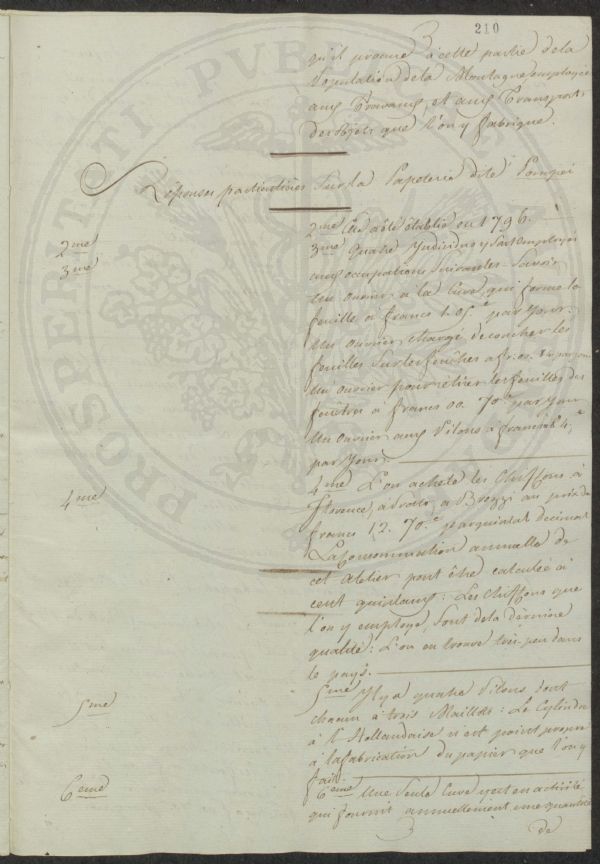 210
qu'il procure à cette partie de la
Population de la Montagne employée
aux Travaux, et aux Transports
des objets que l'on y fabrique.
Réponses particulières sur la Papeterie dite Pompei
2me
2me Elle a été établie en 1796.
3me
3me Quatre Individus y sont employés
aux occupations suivantes. Savoir
Un ouvrier à la Cuve, qui forme la
feuille à francs 1. 05.c par Jour.
Un ouvrier chargé de coucher les
feuilles sur les feûtres a fr: 00. 84 par jour
Un ouvrier pour rétirer les feuilles des
feûtres à francs 00. 70.c par Jour
Un ouvrier aux Pilons à francs
par Jour.
4me
4me L'on achete les Chiffons à
Florence, à Prato, a Brozzi au prix de
francs 12. 70.c par quintal
La Consommation annuelle de
cet Atelier peut être calculée à
cent quintaux: Les Chiffons que
l'on y employe, sont de la dèrnière
qualité: L'on en trouve très-peu dans
le pays.
5me
5me Il y a quatre Pilons, dont
chacun à trois Maillets: Le Cylindre
à l'Hollandaise n'est point propre
à la fabrication du papier que l'on y
fait.
6eme
6eme Une seule Cuve y est en activité
qui fournit annuellement une quantité
de
PROSPERITATI PVBLICAE